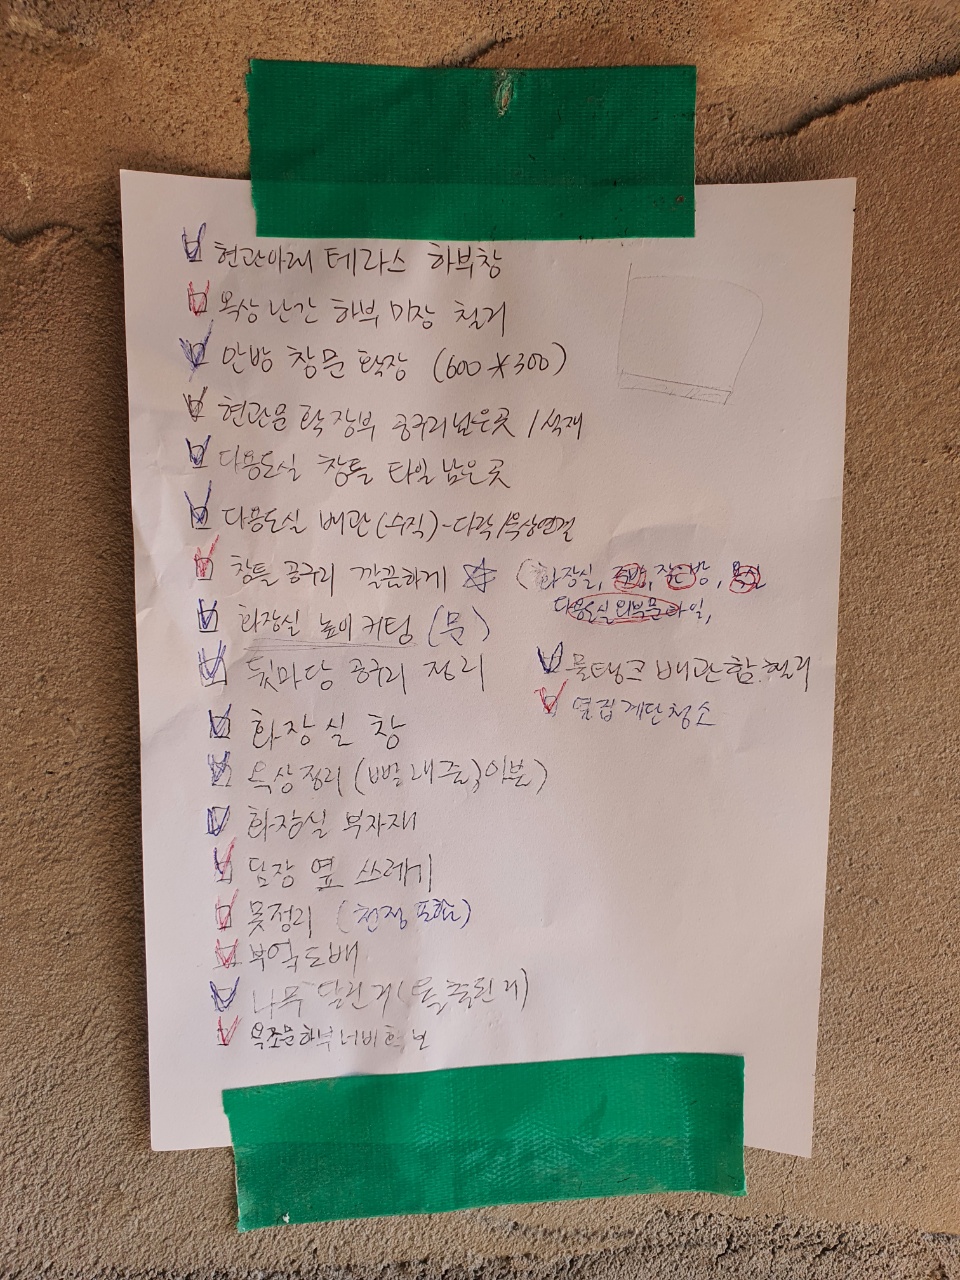 현관아래 테라스 하부창
옥상 난간 하부 미장 철거
안방 창문 확장 (600 X 300)
현관문 확장부 공구리 남은곳 / 석재
다용도실 창틀 타일 남은곳
다용도실 배관 (수직) - 다락/옥상연결
창틀 공구리 깔끔하게 ☆ (화장실, 주방, 작은방, 욕실
다용도실 외부문 타일,
화장실 높이 커팅 (문)
뒷마당 공구리 정리
물탱크 배관함 헐리
옆집 계단청소
화장실 창
옥상정리 (빨래줄, 이불)
화장실 부자재
담장 옆 쓰레기
못정리 (천정 포함)
부엌도배
나무 달린거
욕조문하부너비확보